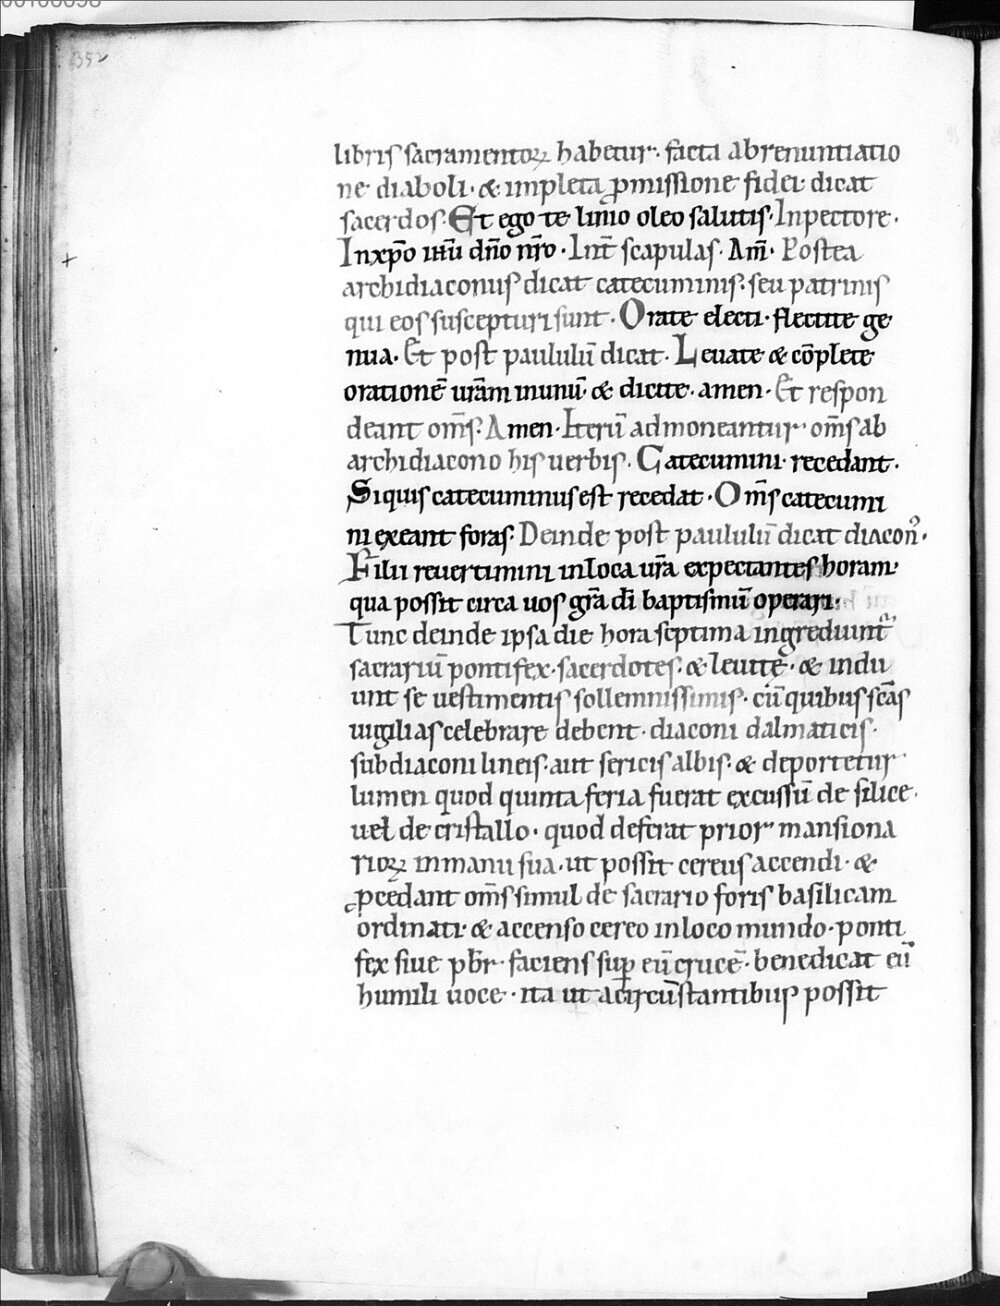 352
libris sacramentoꝝ habetur· facta abrenuntiatio
ne diaboli· & impleta ꝓmissione fidei dicat
sacerdos· Et ego te linio oleo salutis· Inpectore·
Inxp̄o ihū dn̄o nr̄o· Int̄ scapulas· Am̄· Postea
archidiaconus dicat catecuminis· seu patrinis
qui eos suscepturi sunt· Orate electi· flectite ge
nua· Et post paululū dicat· Leuate & cōplete
orationē ur̄am inunū· & dicite· amen· Et respon
deant om̄s· Amen· Iterū admoneantur om̄s ab
archidiacono his uerbis· Catecumini recedant·
Siquis catecuminus est recedat· Om̄s catecumi
ni exeant foras· Deinde post paululū dicat diacon᷒·
Filii reuertimini inloca ur̄a expectantes horam
qua possit circa uos gr̄a dī baptismū operari·
Tunc deinde ipsa die hora septima ingrediunt᷑
sacrariū pontifex· sacerdotes· & leuitę· & indu
unt se uestimentis sollemnissimis· cū quibus sc̄as
uigilias celebrare debent· diaconi dalmaticis·
subdiaconi lineis· aut sericis albis· & deportetur
lumen quod quinta feria fuerat excussū de silice·
uel de cristallo· quod deferat prior mansiona
rioꝝ inmanu sua· ut possit cereus accendi· &
ꝓcedant om̄s simul de sacrario foris basilicam
ordinati· & accenso cereo inloco mundo· ponti
fex siue pb̄r· faciens sup̄ eū crucē· benedicat eū
humili uoce· ita ut acircūstantibus possit